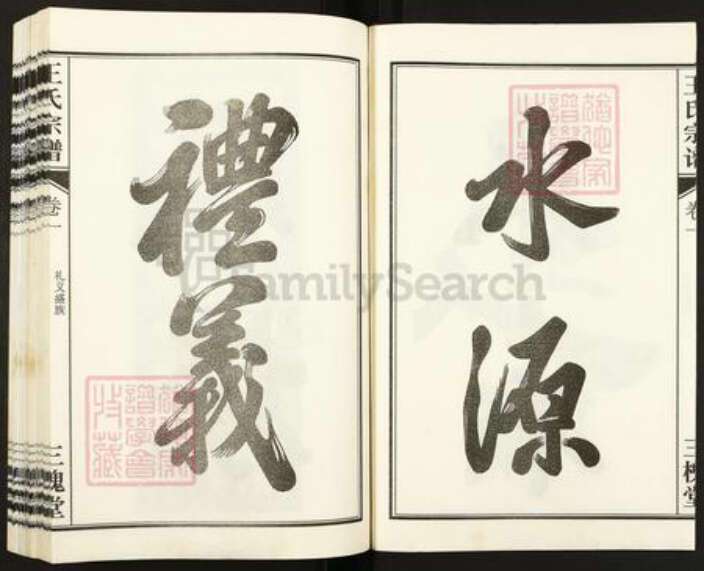 王氏宗谱
卷一
三槐堂
水源
禮義
王氏宗譜
卷一
礼义盛族
三槐堂
FamilySearch